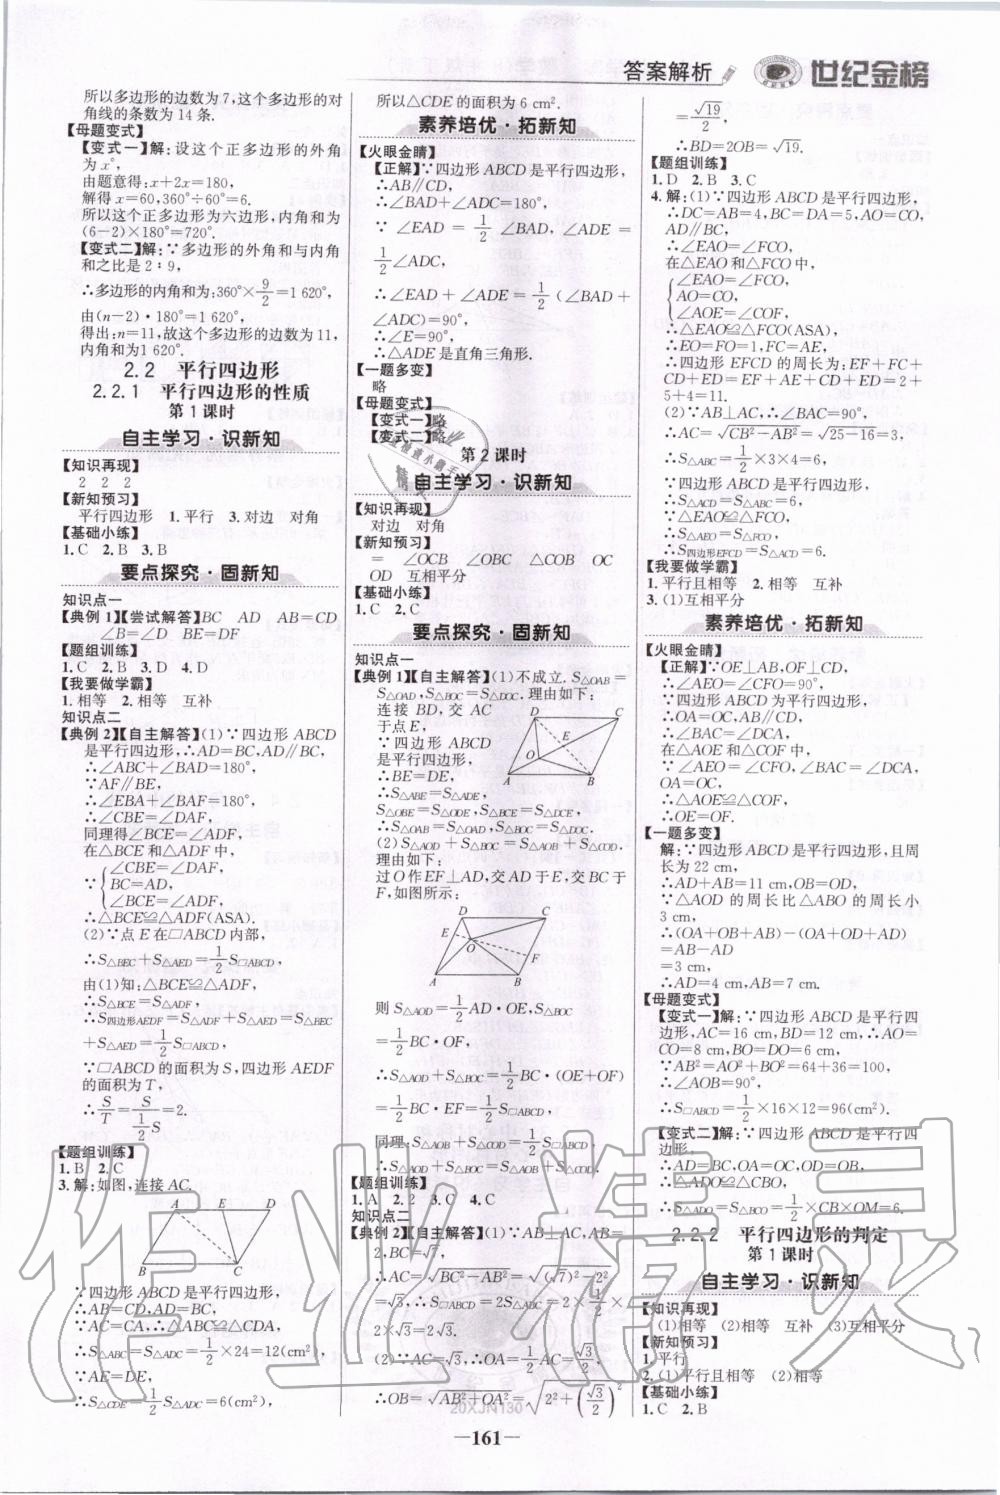 答案解析 世纪金榜
所以多边形的边数为7,这个多边形的对
角线的条数为14条.
【母题变式】
【变式一】解:设这个正多边形的外角
为x°,
由题意得:x+2x=180,
解得x=60,360°÷60°=6.
所以这个正多边形为六边形,内角和为
(6-2)×180°=720°.
【变式二】解:∵多边形的外角和与内角
和之比是2∶9,
∴多边形的内角和为:360°×9/2=1 620°,
由(n-2)·180°=1 620°,
得出:n=11,故这个多边形的边数为11,
内角和为1 620°.
2.2 平行四边形
2.2.1 平行四边形的性质
第1课时
自主学习·识新知
【知识再现】
2 2 2
【新知预习】
平行四边形 1.平行 3.对边 对角
【基础小练】
1.C 2.B 3.B
要点探究·固新知
知识点一
【典例1】【尝试解答】BC AD AB=CD
∠B=∠D BE=DF
【题组训练】
1.C 2.B 3.D 4.D
【我要做学霸】
1.相等 2.相等 互补
知识点二
【典例2】【自主解答】(1)∵四边形ABCD
是平行四边形,∴AD=BC,AD∥BC,
∴∠ABC+∠BAD=180°,
∵AF∥BE,
∴∠EBA+∠BAF=180°,
∴∠CBE=∠DAF,
同理得∠BCE=∠ADF,
在△BCE和△ADF中,
∵{∠CBE=∠DAF,
BC=AD,
∠BCE=∠ADF,
∴△BCE≌△ADF(ASA).
(2)∵点E在□ABCD内部,
∴S△BEC+S△AED=1/2S□ABCD,
由(1)知:△BCE≌△ADF,
∴S△BCE=S△ADF,
∴S四边形AEDF=S△ADF+S△AED=S△BEC
+S△AED=1/2S□ABCD,
∵□ABCD的面积为S,四边形AEDF
的面积为T,
∴S/T=S/(1/2S)=2.
【题组训练】
1.B 2.C
3.解:如图,连接AC.
A D
B C E
∵四边形ABCD是平行四边形,
∴AB=CD,AD=BC,
∵AC=CA,∴△ABC≌△CDA,
∴S△ABC=S△ADC=1/2×24=12(cm²),
∵AE=DE,
∴S△CDE=1/2S△ADC=6(cm²),
所以△CDE的面积为6 cm².
素养培优·拓新知
【火眼金睛】
【正解】∵四边形ABCD是平行四边形,
∴AB∥CD,
∴∠BAD+∠ADC=180°,
∵∠EAD=1/2∠BAD,∠ADE=
1/2∠ADC,
∴∠EAD+∠ADE=1/2(∠BAD+
∠ADC)=90°,
∴∠E=90°,
∴△ADE是直角三角形.
【一题多变】
略
【母题变式】
【变式一】略
【变式二】略
第2课时
自主学习·识新知
【知识再现】
对边 对角
【新知预习】
= ∠OCB ∠OBC △COB OC
OD 互相平分
【基础小练】
1.C 2.C
要点探究·固新知
知识点一
【典例1】【自主解答】(1)不成立.S△OAB=
S△OAD,S△BOC=S△DOC.理由如下:
连接BD,交AC
于点E,
∵四边形ABCD
是平行四边形,
∴BE=DE,
D C E O A B
∴S△ABE=S△ADE,
S△OBE=S△ODE,S△BCE=S△DCE,
∴S△OAB=S△OAD,S△BOC=S△DOC.
(2)S△AOD+S△BOC=S△AOB+S△COD.
理由如下:
过O作EF⊥AD,交AD于E,交BC于
F,如图所示:
D C E O F A B
则S△AOD=1/2AD·OE,S△BOC
=1/2BC·OF,
∴S△AOD+S△BOC=1/2BC·(OE+OF)
=1/2BC·EF=1/2S□ABCD,
同理:S△AOB+S△COD=1/2S□ABCD,
∴S△AOD+S△BOC=S△AOB+S△COD.
【题组训练】
1.A 2.2 3.C 4.C
知识点二
【典例2】【自主解答】(1)∵AB⊥AC,AB=
2,BC=√7,
∴AC=√(BC²-AB²)=√((√7)²-2²)
=√3,∴S□ABCD=2S△ABC=2×1/2×
2×√3=2√3.
(2)∵AC=√3,∴AO=1/2AC=√3/2,
∴OB=√(AB²+OA²)=√(2²+(√3/2)²)
=√19/2,
∴BD=2OB=√19.
【题组训练】
1.D 2.B 3.C
4.解:(1)∵四边形ABCD是平行四边形,
∴DC=AB=4,BC=DA=5,OA=OC,
AD∥BC,
∴∠EAO=∠FCO,
在△EAO和△FCO中,
{∠EAO=∠FCO,
AO=CO,
∠AOE=∠COF,
∴△EAO≌△FCO(ASA),
∴EO=FO=1,FC=AE,
∴四边形EFCD的周长为:EF+FC
+CD+ED=EF+AE+CD+ED=2+
5+4=11.
(2)∵AB⊥AC,∴∠BAC=90°,
∴AC=√(CB²-AB²)=√(25-16)=3,
∴S△ABC=1/2×3×4=6,
∴S△ACD=S△ABC=6,
∵△EAO≌△FCO,
∴S△AEO=S△FCO,
∴S四边形EFCD=S△ACD=6.
【我要做学霸】
1.平行且相等 2.相等 互补
3.(1)互相平分
素养培优·拓新知
【火眼金睛】
【正解】∵OE⊥AB,OF⊥CD,
∴∠AEO=∠CFO=90°,
∵四边形ABCD为平行四边形,
∴OA=OC,AB∥CD,
∴∠BAC=∠DCA,
在△AOE和△COF中,
∵∠AEO=∠CFO,∠BAC=∠DCA,
OA=OC,
∴△AOE≌△COF,
∴OE=OF.
【一题多变】
解:∵四边形ABCD是平行四边形,且周
长为22 cm,
∴AD+AB=11 cm,OB=OD,
∵△AOD的周长比△ABO的周长小
3 cm,
∴(OA+OB+AB)-(OA+OD+AD)
=AB-AD
=3 cm,
∴AD=4 cm,AB=7 cm.
【母题变式】
【变式一】解:∵四边形ABCD是平行四
边形,AC=16 cm,BD=12 cm,∴AO=
CO=8 cm,BO=DO=6 cm,
∵AB²=AO²+BO²=64+36=100,
∴∠AOB=90°,
∴S□ABCD=1/2×16×12=96(cm²).
【变式二】∵四边形ABCD是平行四边形,
∴AD=BC,OA=OC,OB=OD,
∴△ADO≌△CBO,
∴S△ADO=S△BCO=1/2CB×OM=6,
2.2.2 平行四边形的判定
第1课时
自主学习·识新知
【知识再现】
(1)相等 (2)相等 互补 (3)互相平分
【新知预习】
1.平行
2.(1)平行且相等 (2)相等
【基础小练】
1.C 2.B
20XJN130
—161—
作业精灵